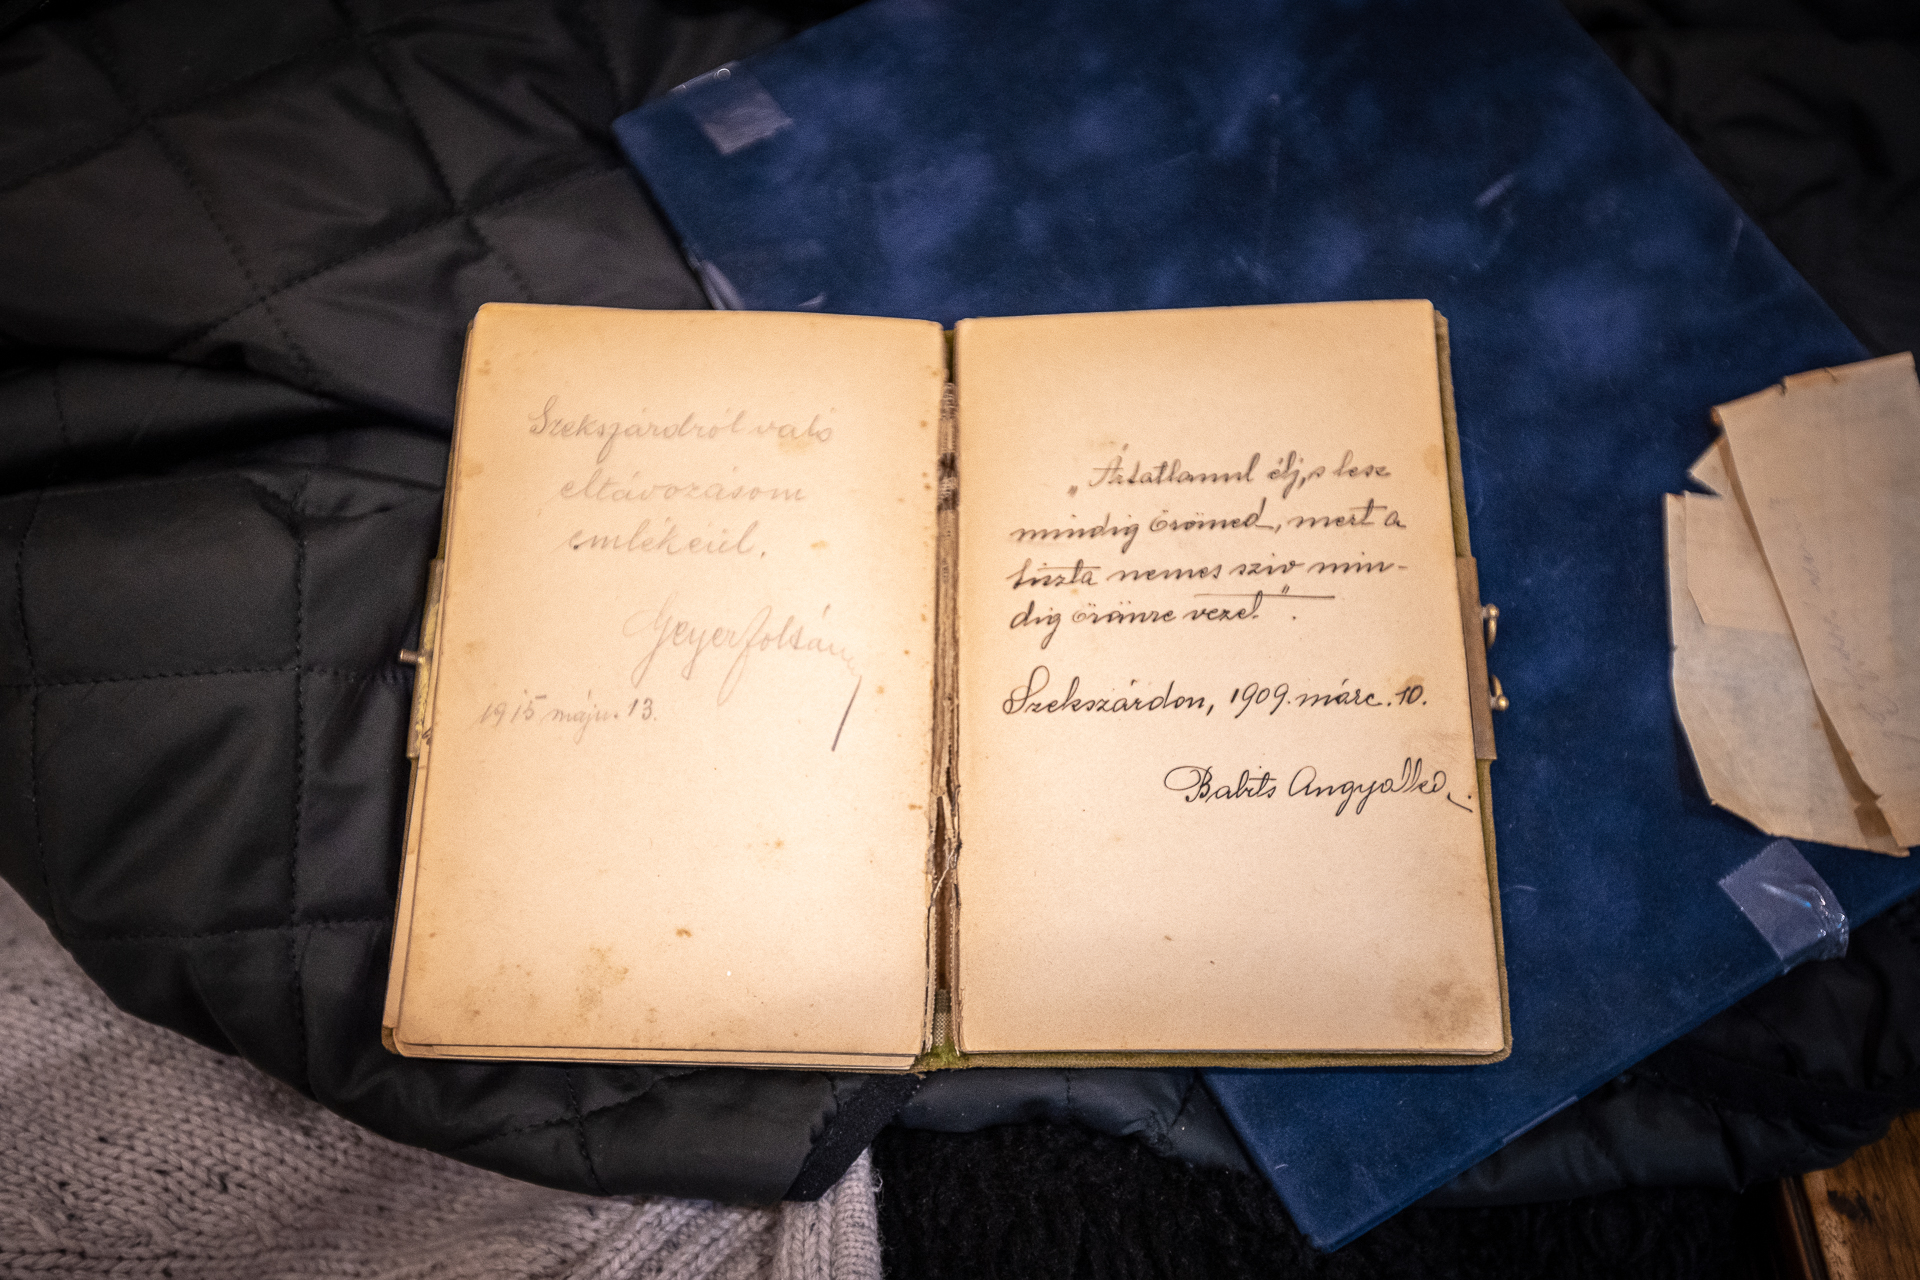 Szekszárdról való
eltávozásom
emlékéül.
Geyer Zoltán
1915 máju. 13.
„Ártatlanul élj, s lesz
mindig örömed, mert a
tiszta nemes sziv min-
dig örömre vezet."
Szekszárdon, 1909. márc. 10.
Babits Angyalka